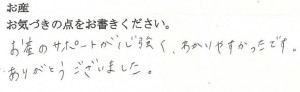 お産
お気づきの点をお書きください。
お産のサポートが心強く、わかりやすかったです。
ありがとうございました。